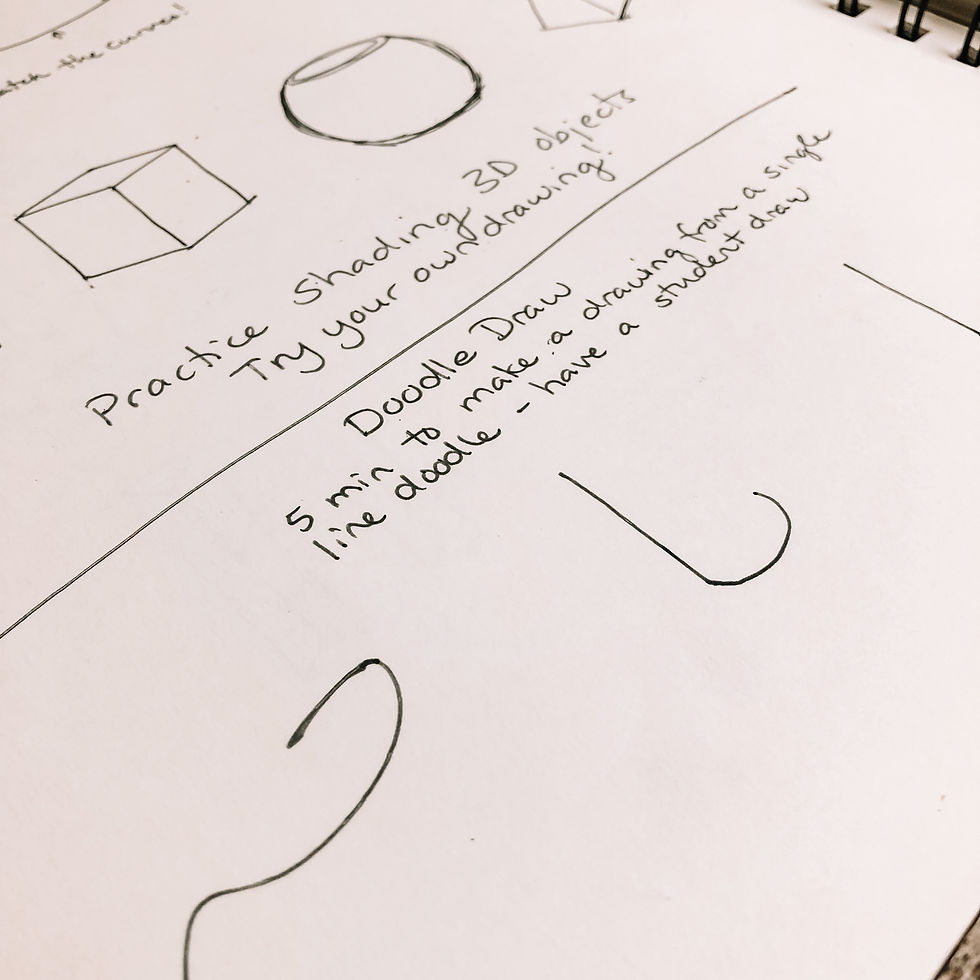 the curves!
Practice Shading 3D objects
Try your own drawing!
Doodle Draw
5 min to make a drawing from a single
line doodle - have a student draw